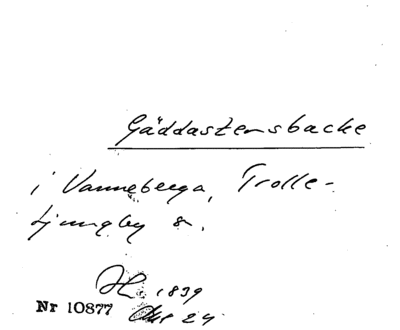 Gäddastensbacke
i Vanneberga, Trolle-
Ljungby s.
1839
Nr 10877 Okt 24